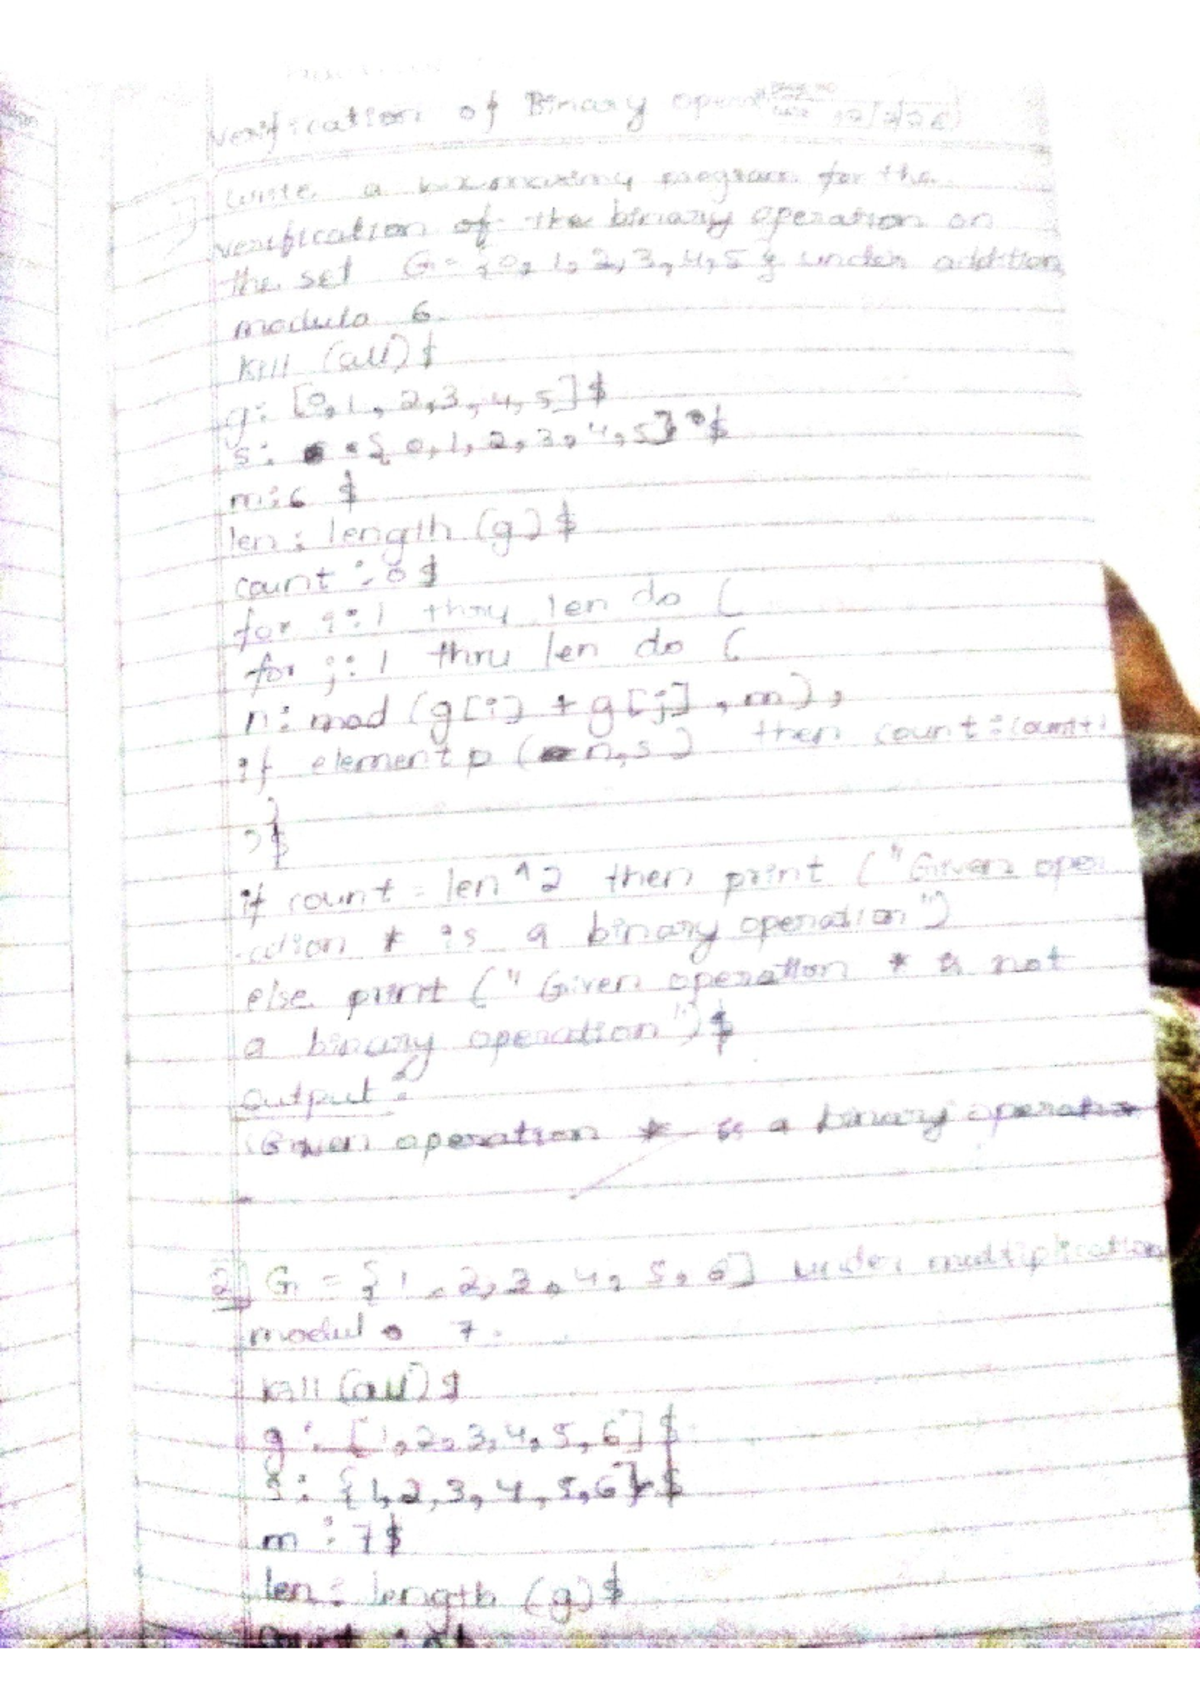 Verification of Binary
Write a program for the
verification of the binary operation on
the set G = {0, 1, 2, 3, 4, 5} under addition
modulo 6.
kill (all) $
g: [0, 1, 2, 3, 4, 5] $
s: {0, 1, 2, 3, 4, 5} $
m: 6 $
len : length (g) $
count : 0 $
for i: 1 thru len do (
for j: 1 thru len do (
n: mod (g[i] + g[j], m),
if elementp (n, s) then count : count+1
)
)$
if count = len ^ 2 then print ("Given oper
ation * is a binary operation")
else print (" Given operation * is not
a binary operation") $
output :
Given operation * is a binary operation
2] G = {1, 2, 3, 4, 5, 6} under multiplication
modulo 7.
kill (all) $
g : [1, 2, 3, 4, 5, 6] $
s : {1, 2, 3, 4, 5, 6} $
m : 7 $
len : length (g) $